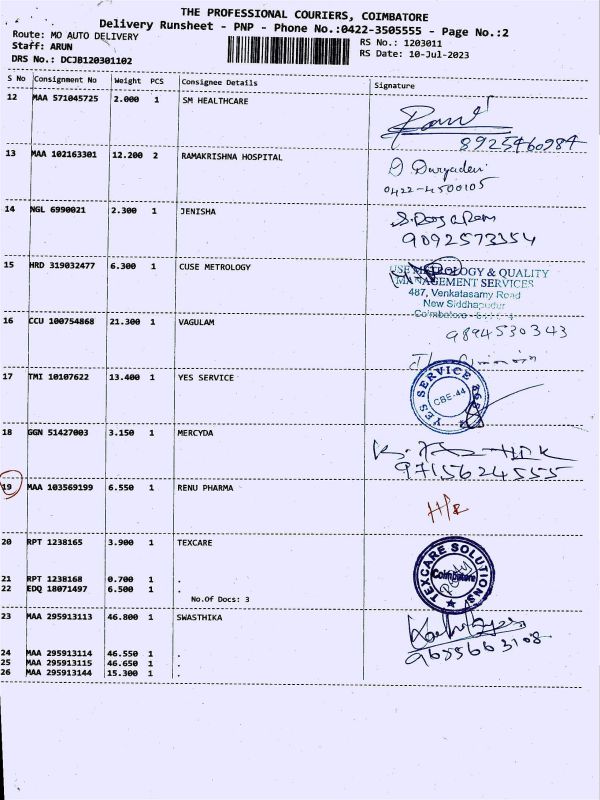 THE PROFESSIONAL COURIERS, COIMBATORE
Delivery Runsheet - PNP - Phone No.:0422-3505555 - Page No.:2
Route: MO AUTO DELIVERY
Staff: ARUN
DRS No.: DCJB120301102
RS No.: 1203011
RS Date: 10-Jul-2023
S No Consignment No Weight PCS Consignee Details Signature
12 MAA 571045725 2.000 1 SM HEALTHCARE
8925460984
13 MAA 102163301 12.200 2 RAMAKRISHNA HOSPITAL
0422-4500105
14 NGL 6990021 2.300 1 JENISHA
9092573354
15 HRD 319032477 6.300 1 CUSE METROLOGY
METROLOGY & QUALITY
MANAGEMENT SERVICES
487, Venkatasamy Road
New Siddhapudur
Coimbatore
16 CCU 100754868 21.300 1 VAGULAM
9894530343
17 TMI 10107622 13.400 1 YES SERVICE
YES SERVICE
CBE-44
18 GGN 51427003 3.150 1 MERCYDA
9715624555
19 MAA 103569199 6.550 1 RENU PHARMA
20 RPT 1238165 3.900 1 TEXCARE
TEXCARE SOLUTIONS
Coimbatore
21 RPT 1238168 0.700 1 .
22 EDQ 18071497 6.500 1 .
No.Of Docs: 3
23 MAA 295913113 46.800 1 SWASTHIKA
9655663108
24 MAA 295913114 46.550 1 .
25 MAA 295913115 46.650 1 .
26 MAA 295913144 15.300 1 .